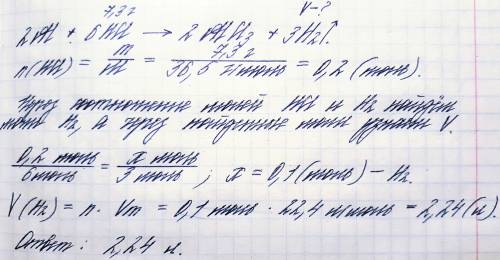 7,3 г V-?
2Al + 6HCl → 2AlCl₃ + 3H₂↑.
n(HCl) = m/M = 7,3 г / 36,5 г/моль = 0,2 (моль).
Через соотношение молей HCl и H₂ найдём
моли H₂, а через найденные моли узнаем V.
0,2 моль / 6 моль = x моль / 3 моль ; x = 0,1 (моль) – H₂.
V(H₂) = n · Vm = 0,1 моль · 22,4 л/моль = 2,24 (л).
Ответ: 2,24 л.